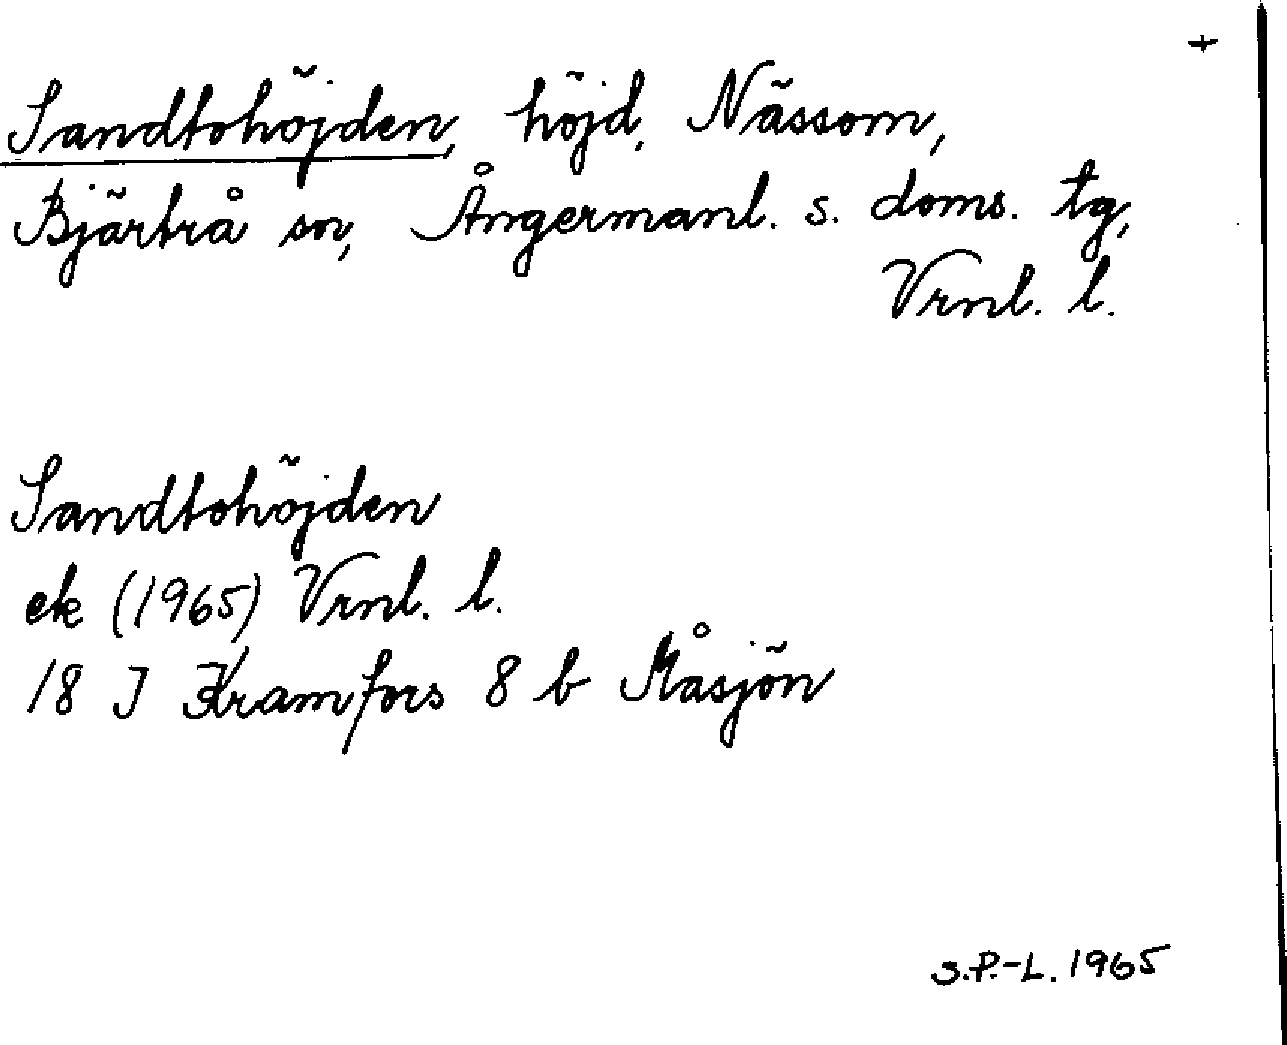 +
Sandtohöjden, höjd, Nässom,
Bjärtrå sn, Ångermanl. s. doms. tg,
Vrnl. l.
Sandtohöjden
ek (1965) Vrnl. l.
18 J Kramfors 8 b Måsjön
S.P.-L. 1965